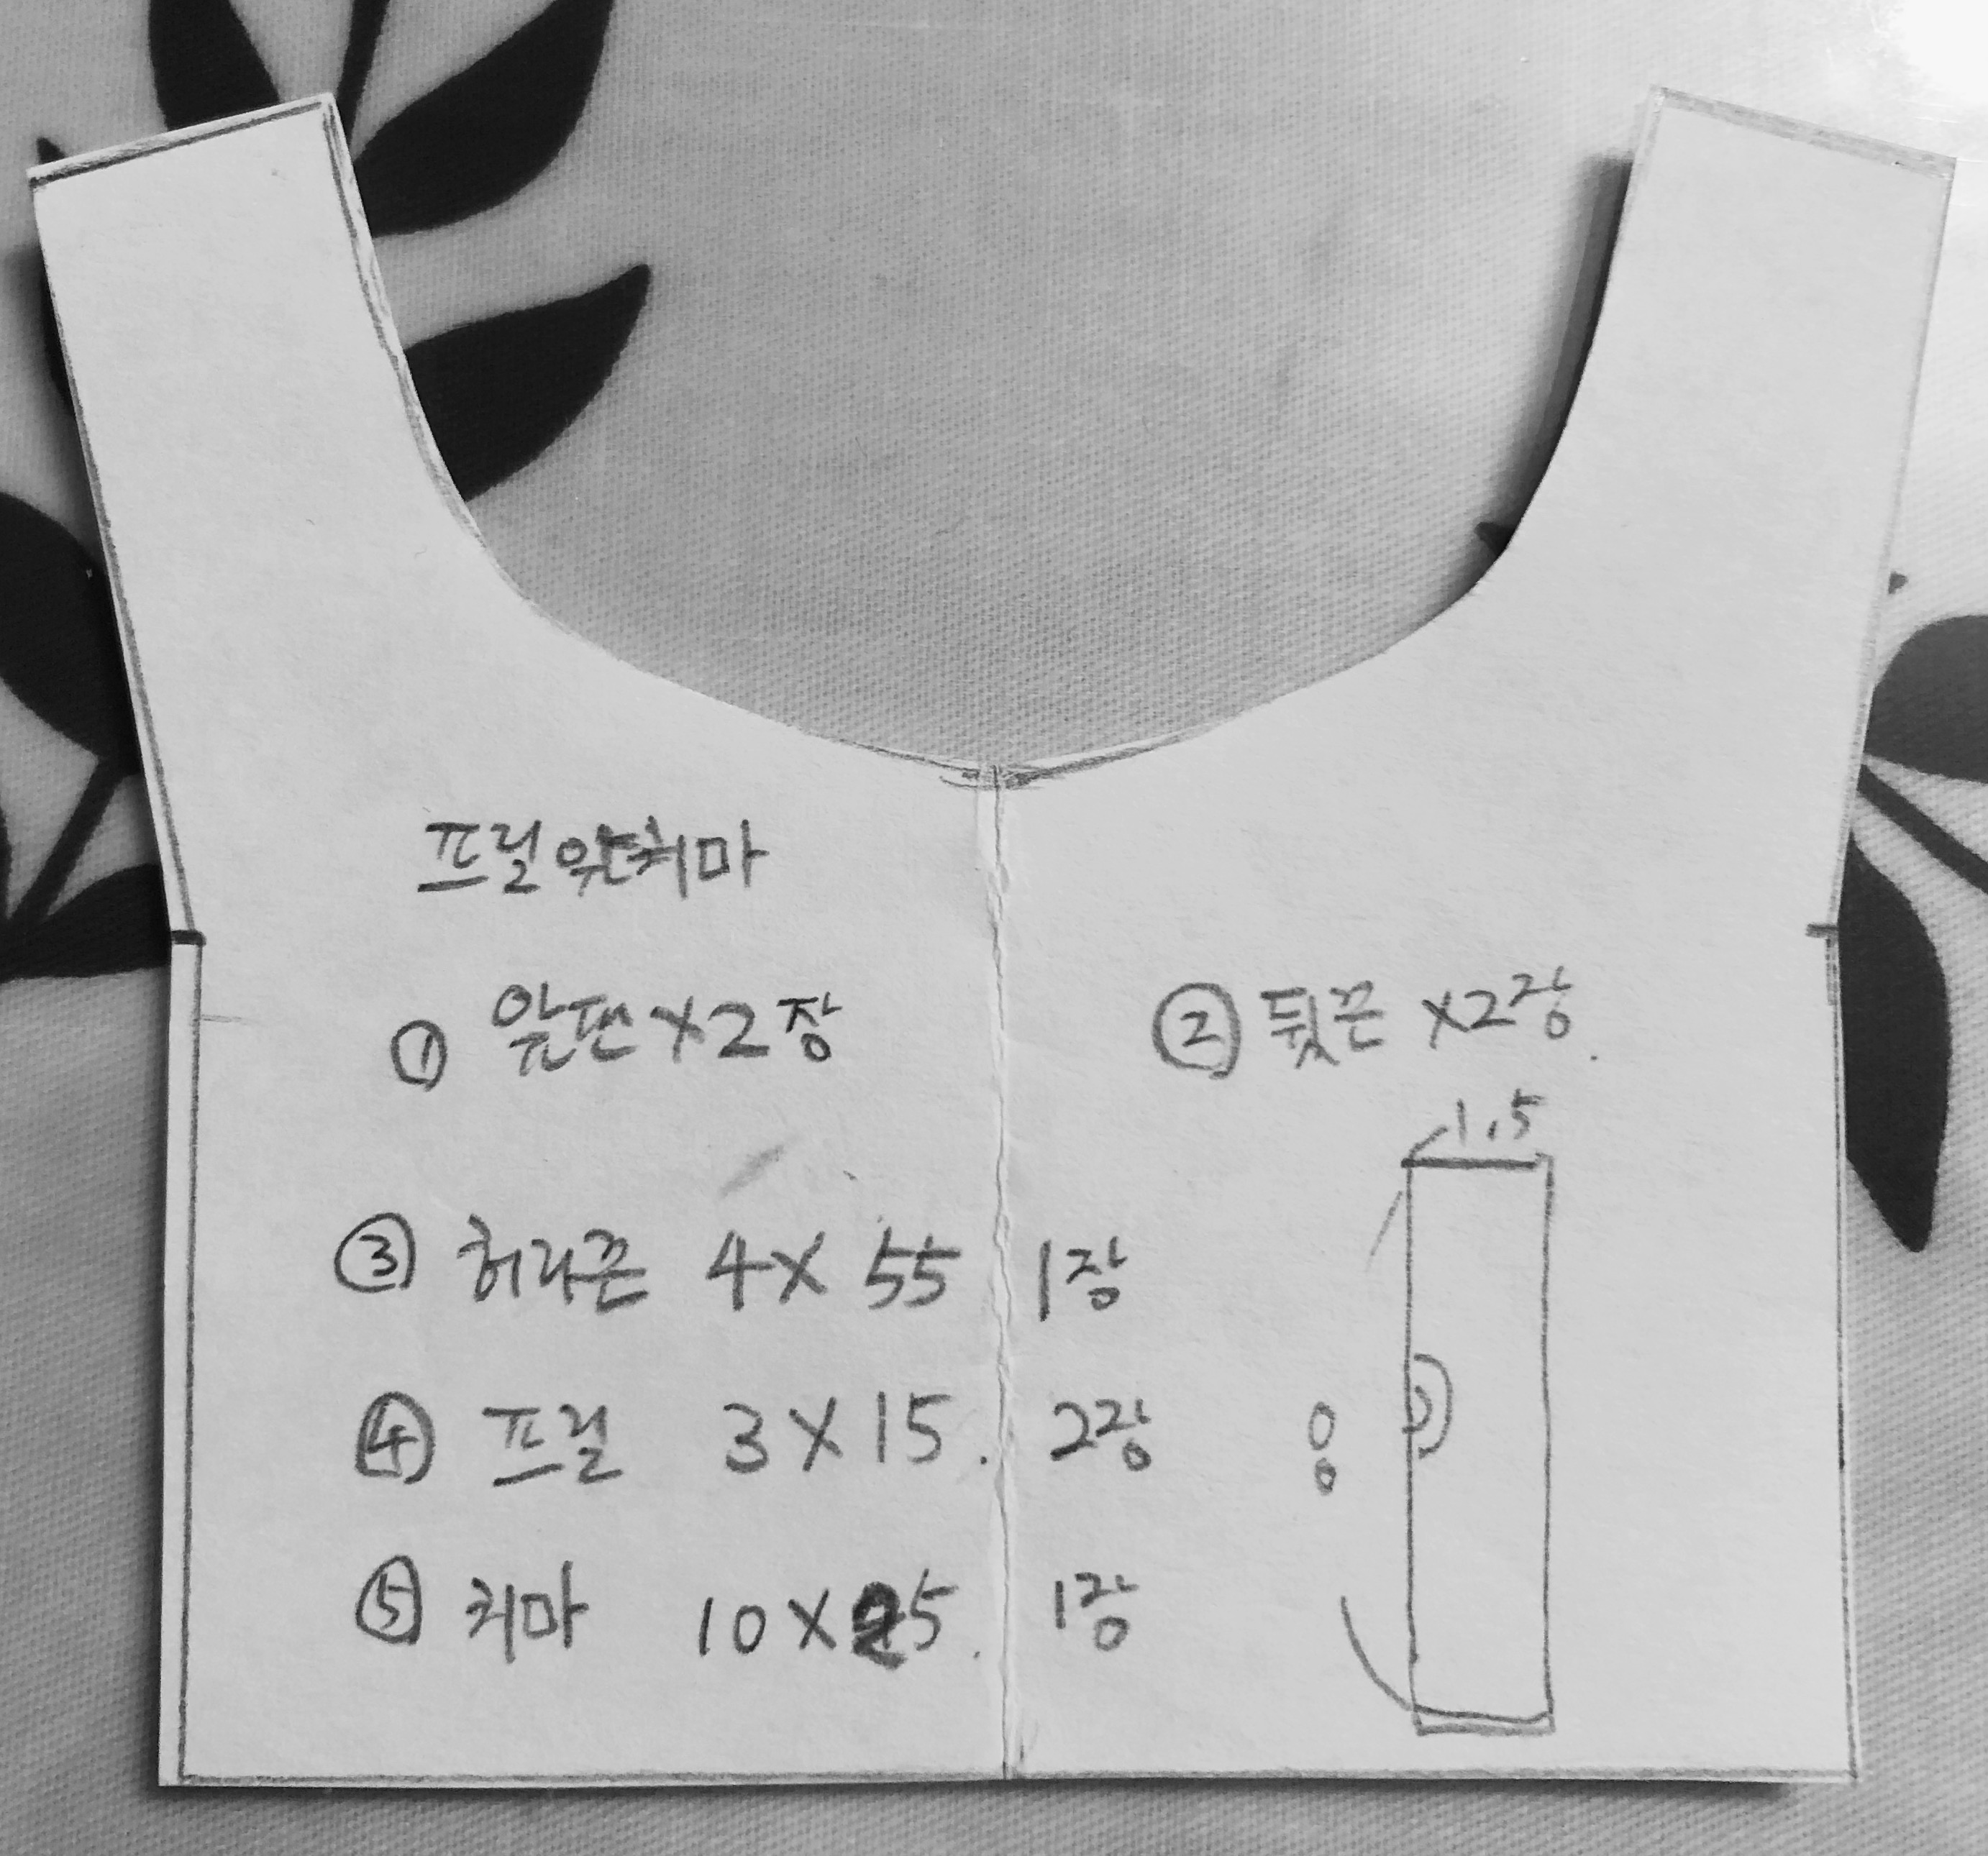 프릴앞치마
① 앞판 X 2장
② 뒷끈 X2장.
1.5
③ 허리끈 4X 55 1장
④ 프릴 3 X 15. 2장
⑤ 치마 10 X 25. 1장